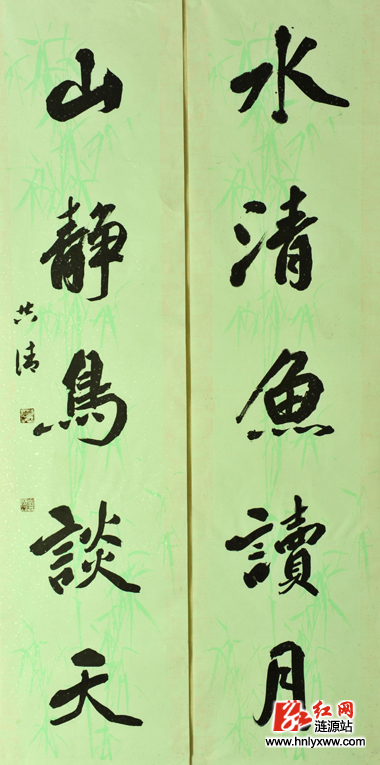 水清魚讀月
山静鳥談天
共清
红网
涟源站
www.hnlyxww.com